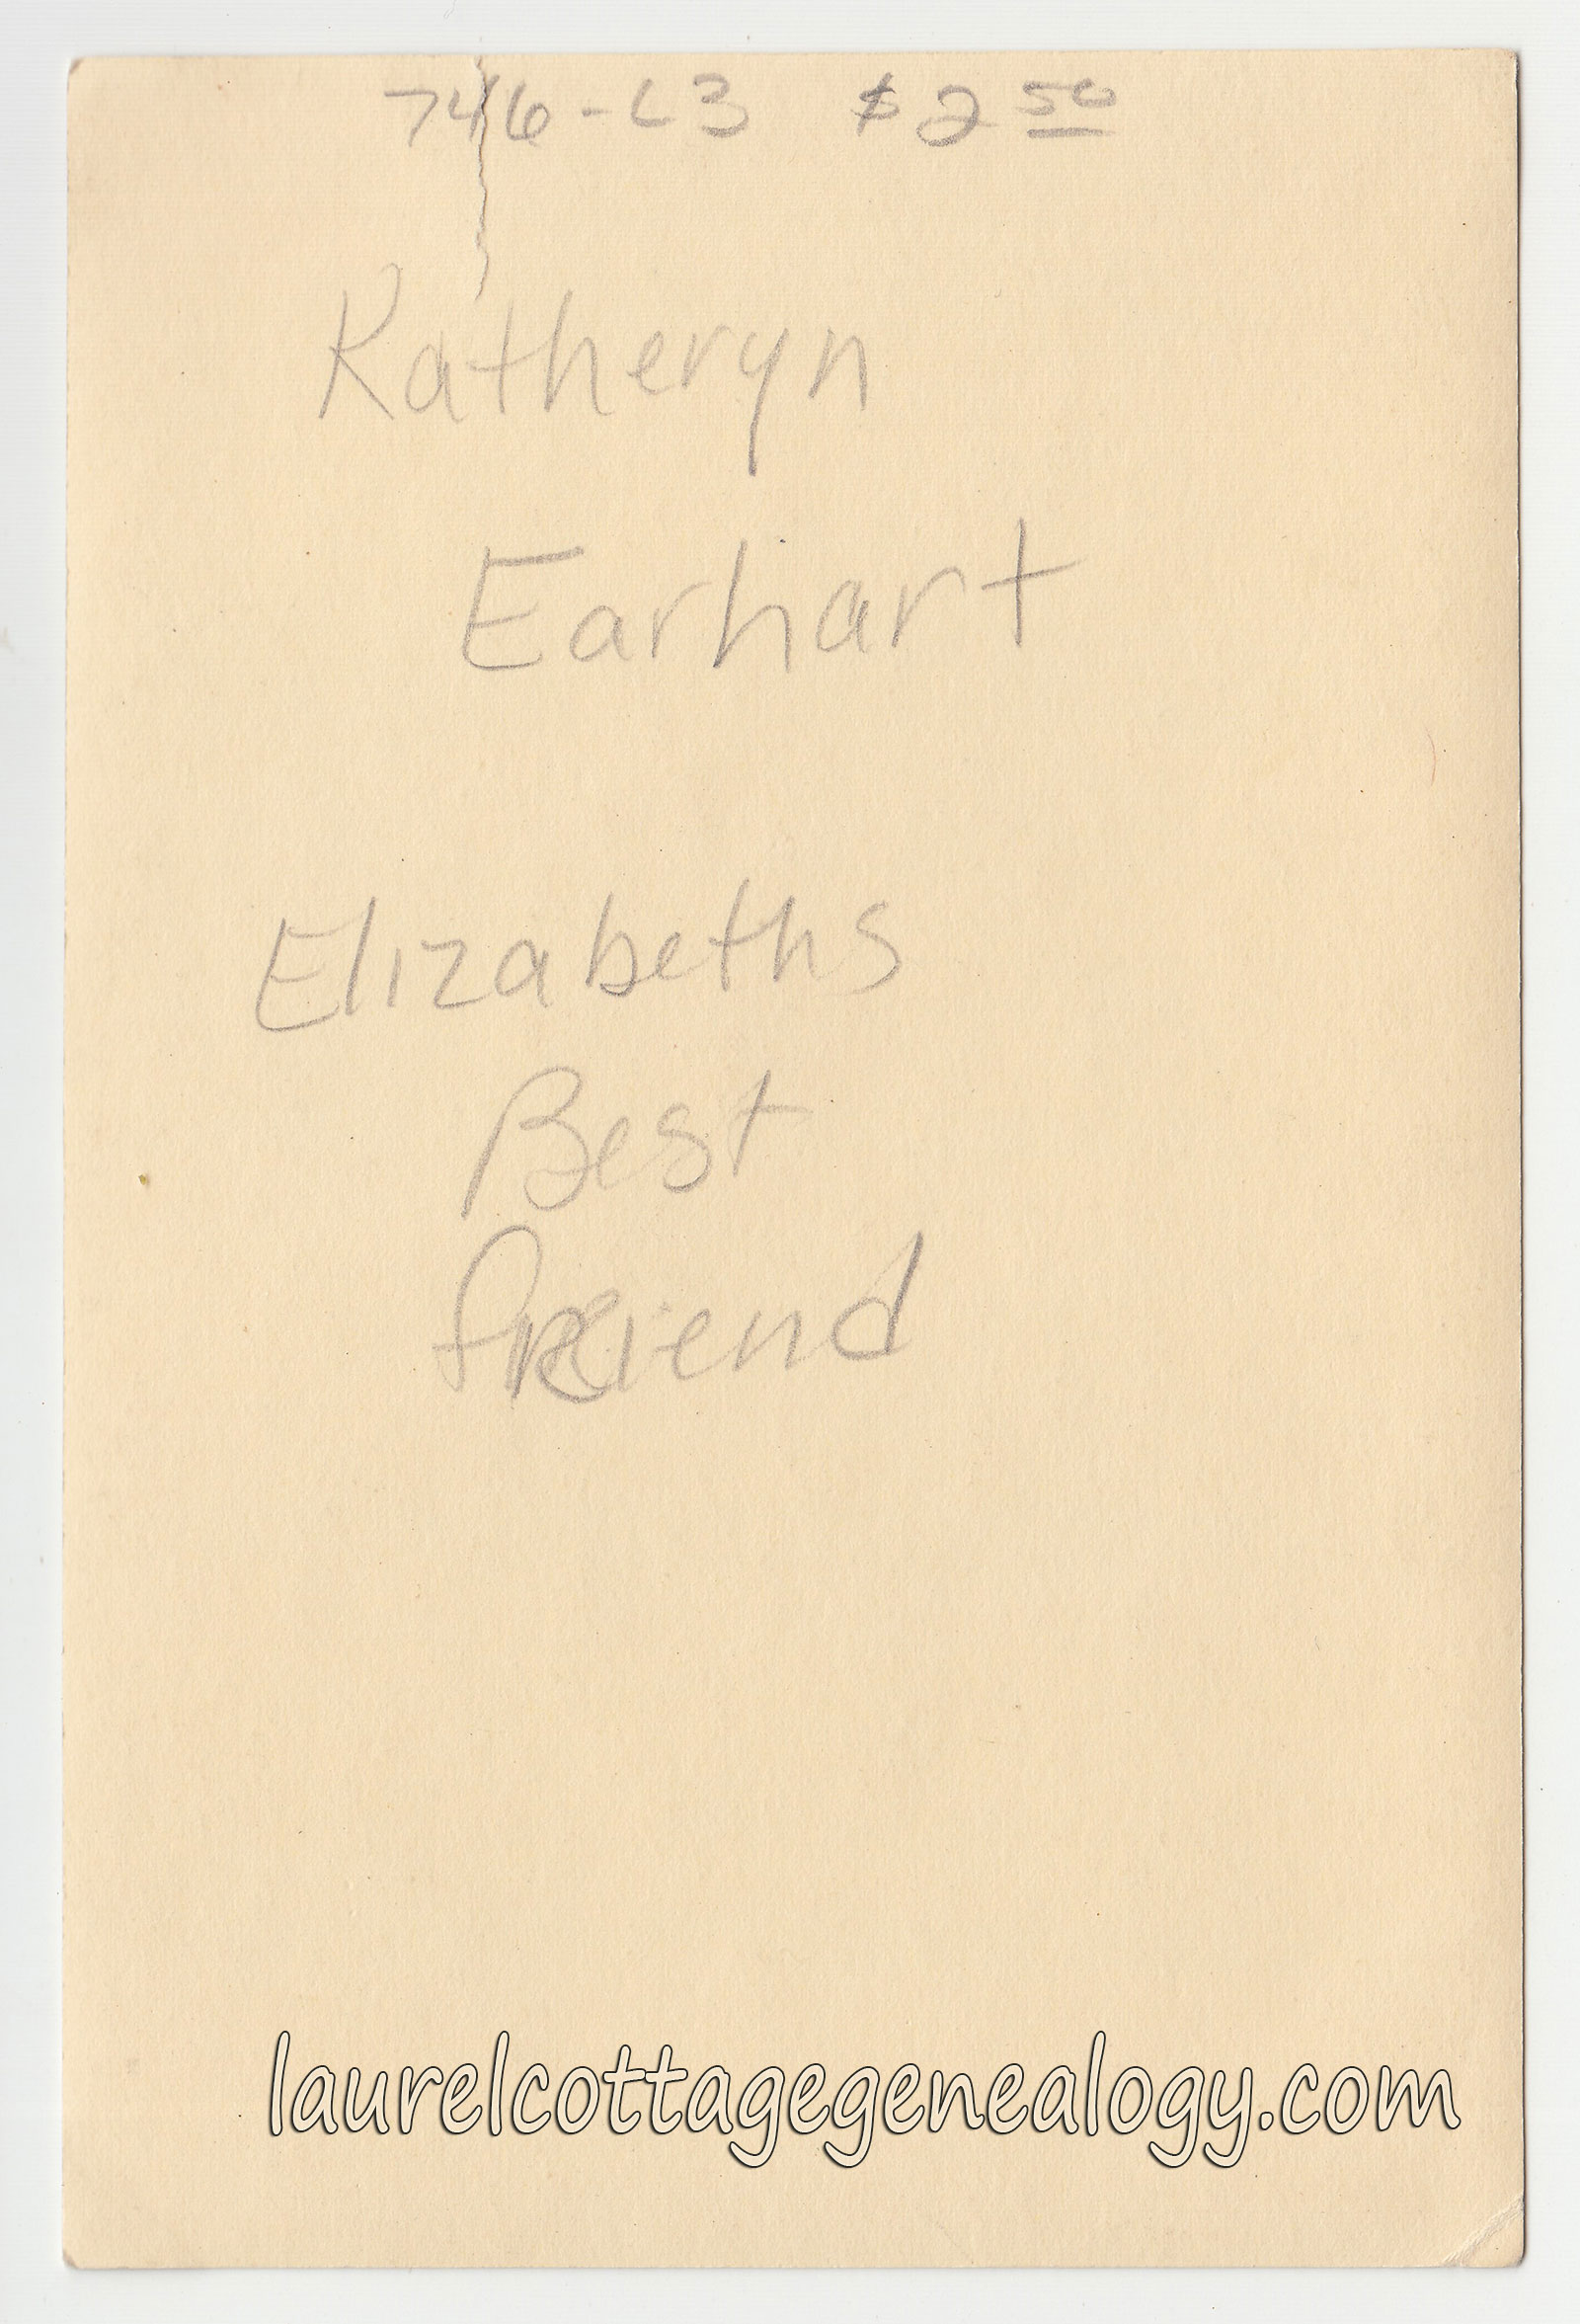 746-L3 $2 50
Katheryn
Earhart
Elizabeths
Best
friend
laurelcottagegenealogy.com